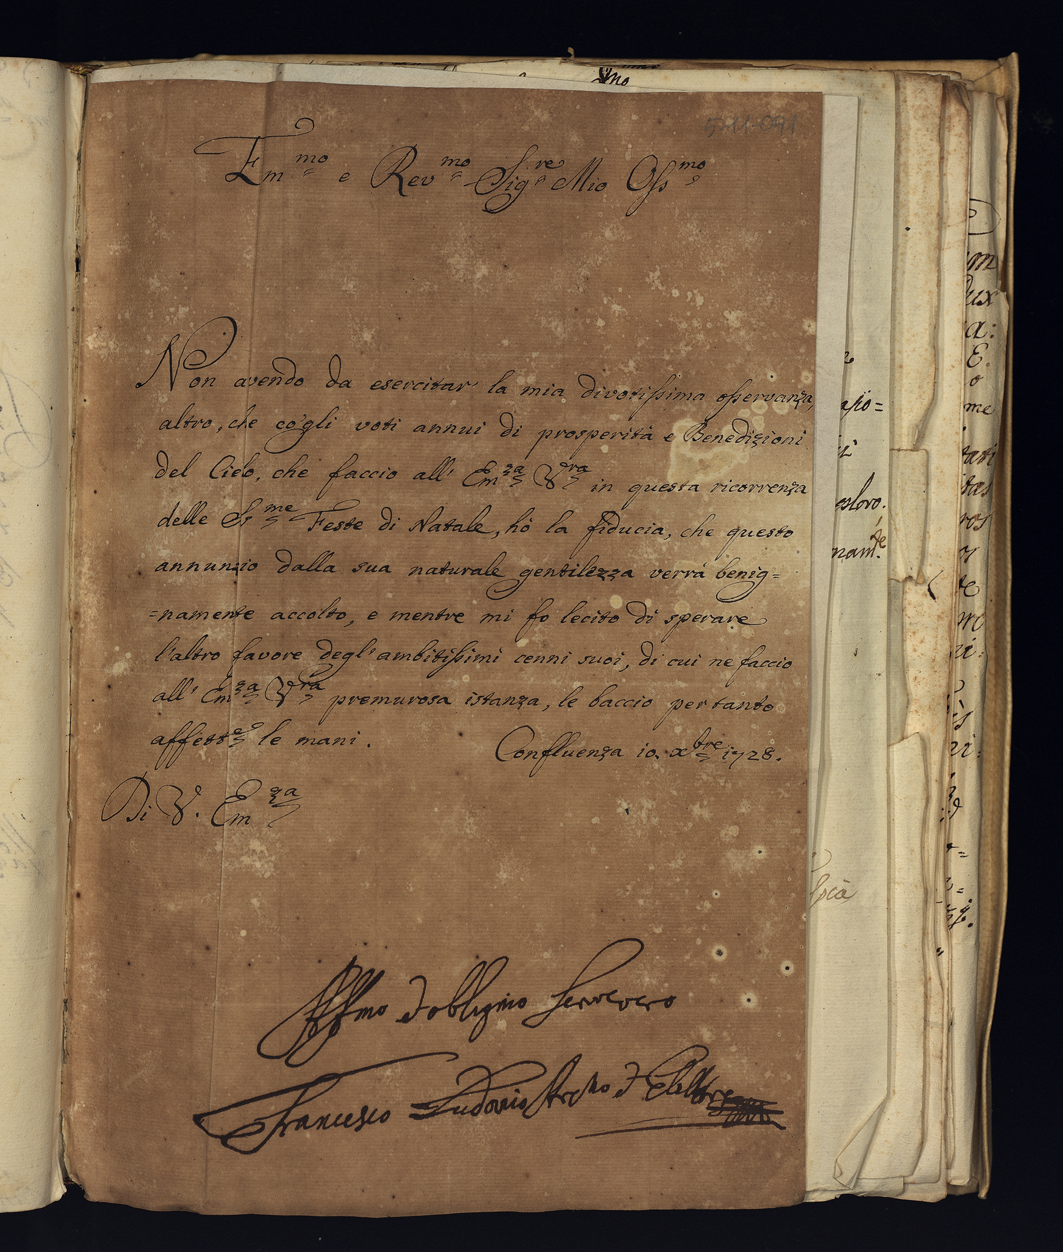 5-11-091
Em.mo e Rev.mo Sig.re Mio Oss.mo
Non avendo da esercitar' la mia divotissima osservanza,
altro, che co'gli voti annui di prosperità e Benedizioni
del Cielo, che faccio all' Em.za V.ra in questa ricorrenza
delle S.s.me Feste di Natale, hò la fiducia, che questo
annunzio dalla sua naturale gentilezza verrà benig=
=namente accolto, e mentre mi fo lecito di sperare
l'altro favore degl' ambitissimi cenni suoi, di cui ne faccio
all' Em.za V.ra premurosa istanza, le baccio per tanto
affett.e le mani. Confluenza 10. x.bre 1728.
Di V. Em.za
Aff.mo ed obligmo Servero
Francesco Ludovico Arcivo ed Elettore